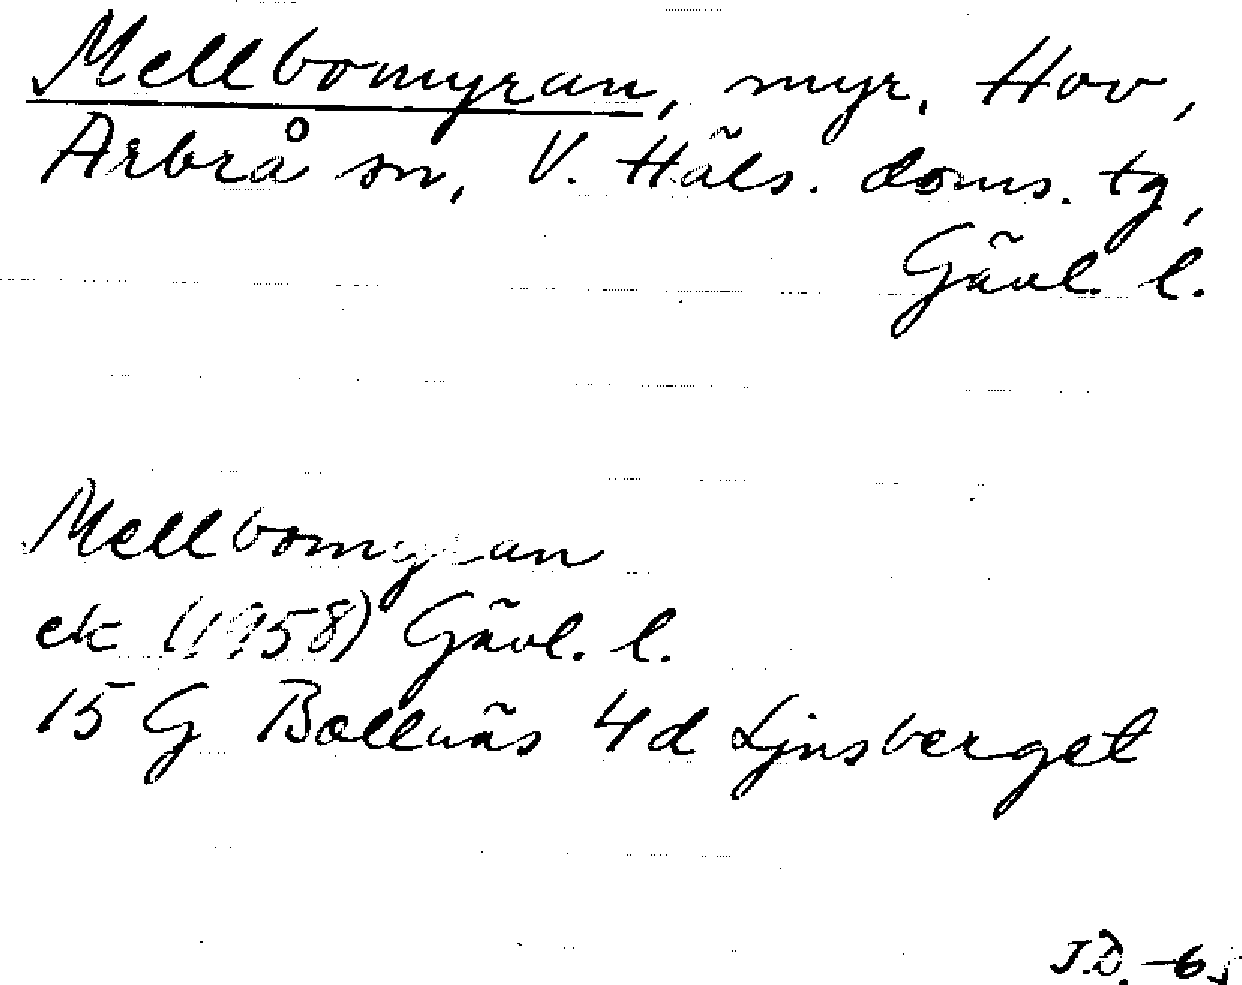 Mellbomyran, myr, Hov,
Arbrå sn, V. Häls. doms. tg,
Gävl. l.
Mellbomyran
ek (1958) Gävl. l.
15 G Bollnäs 4d Ljusberget
J.D. -65